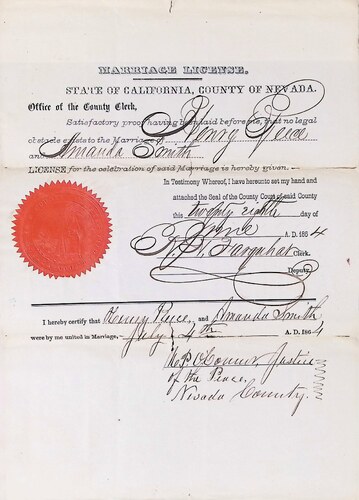 MARRIAGE LICENSE.
STATE OF CALIFORNIA, COUNTY OF NEVADA.
Office of the County Clerk,
Satisfactory proof having been laid before me, that no legal
obstacle exists to the Marriage of Henry Peece
and Amanda Smith
LICENSE for the celebration of said Marriage is hereby given.
In Testimony Whereof, I have hereunto set my hand and
attached the Seal of the County Court of said County
this twenty eighth day of
June A. D. 1864
Farquhar Clerk.
Deputy.
I hereby certify that Henry Peece, and Amanda Smith
were by me united in Marriage, July 4th A. D. 1864
Justice
of the Peace,
Nevada County.